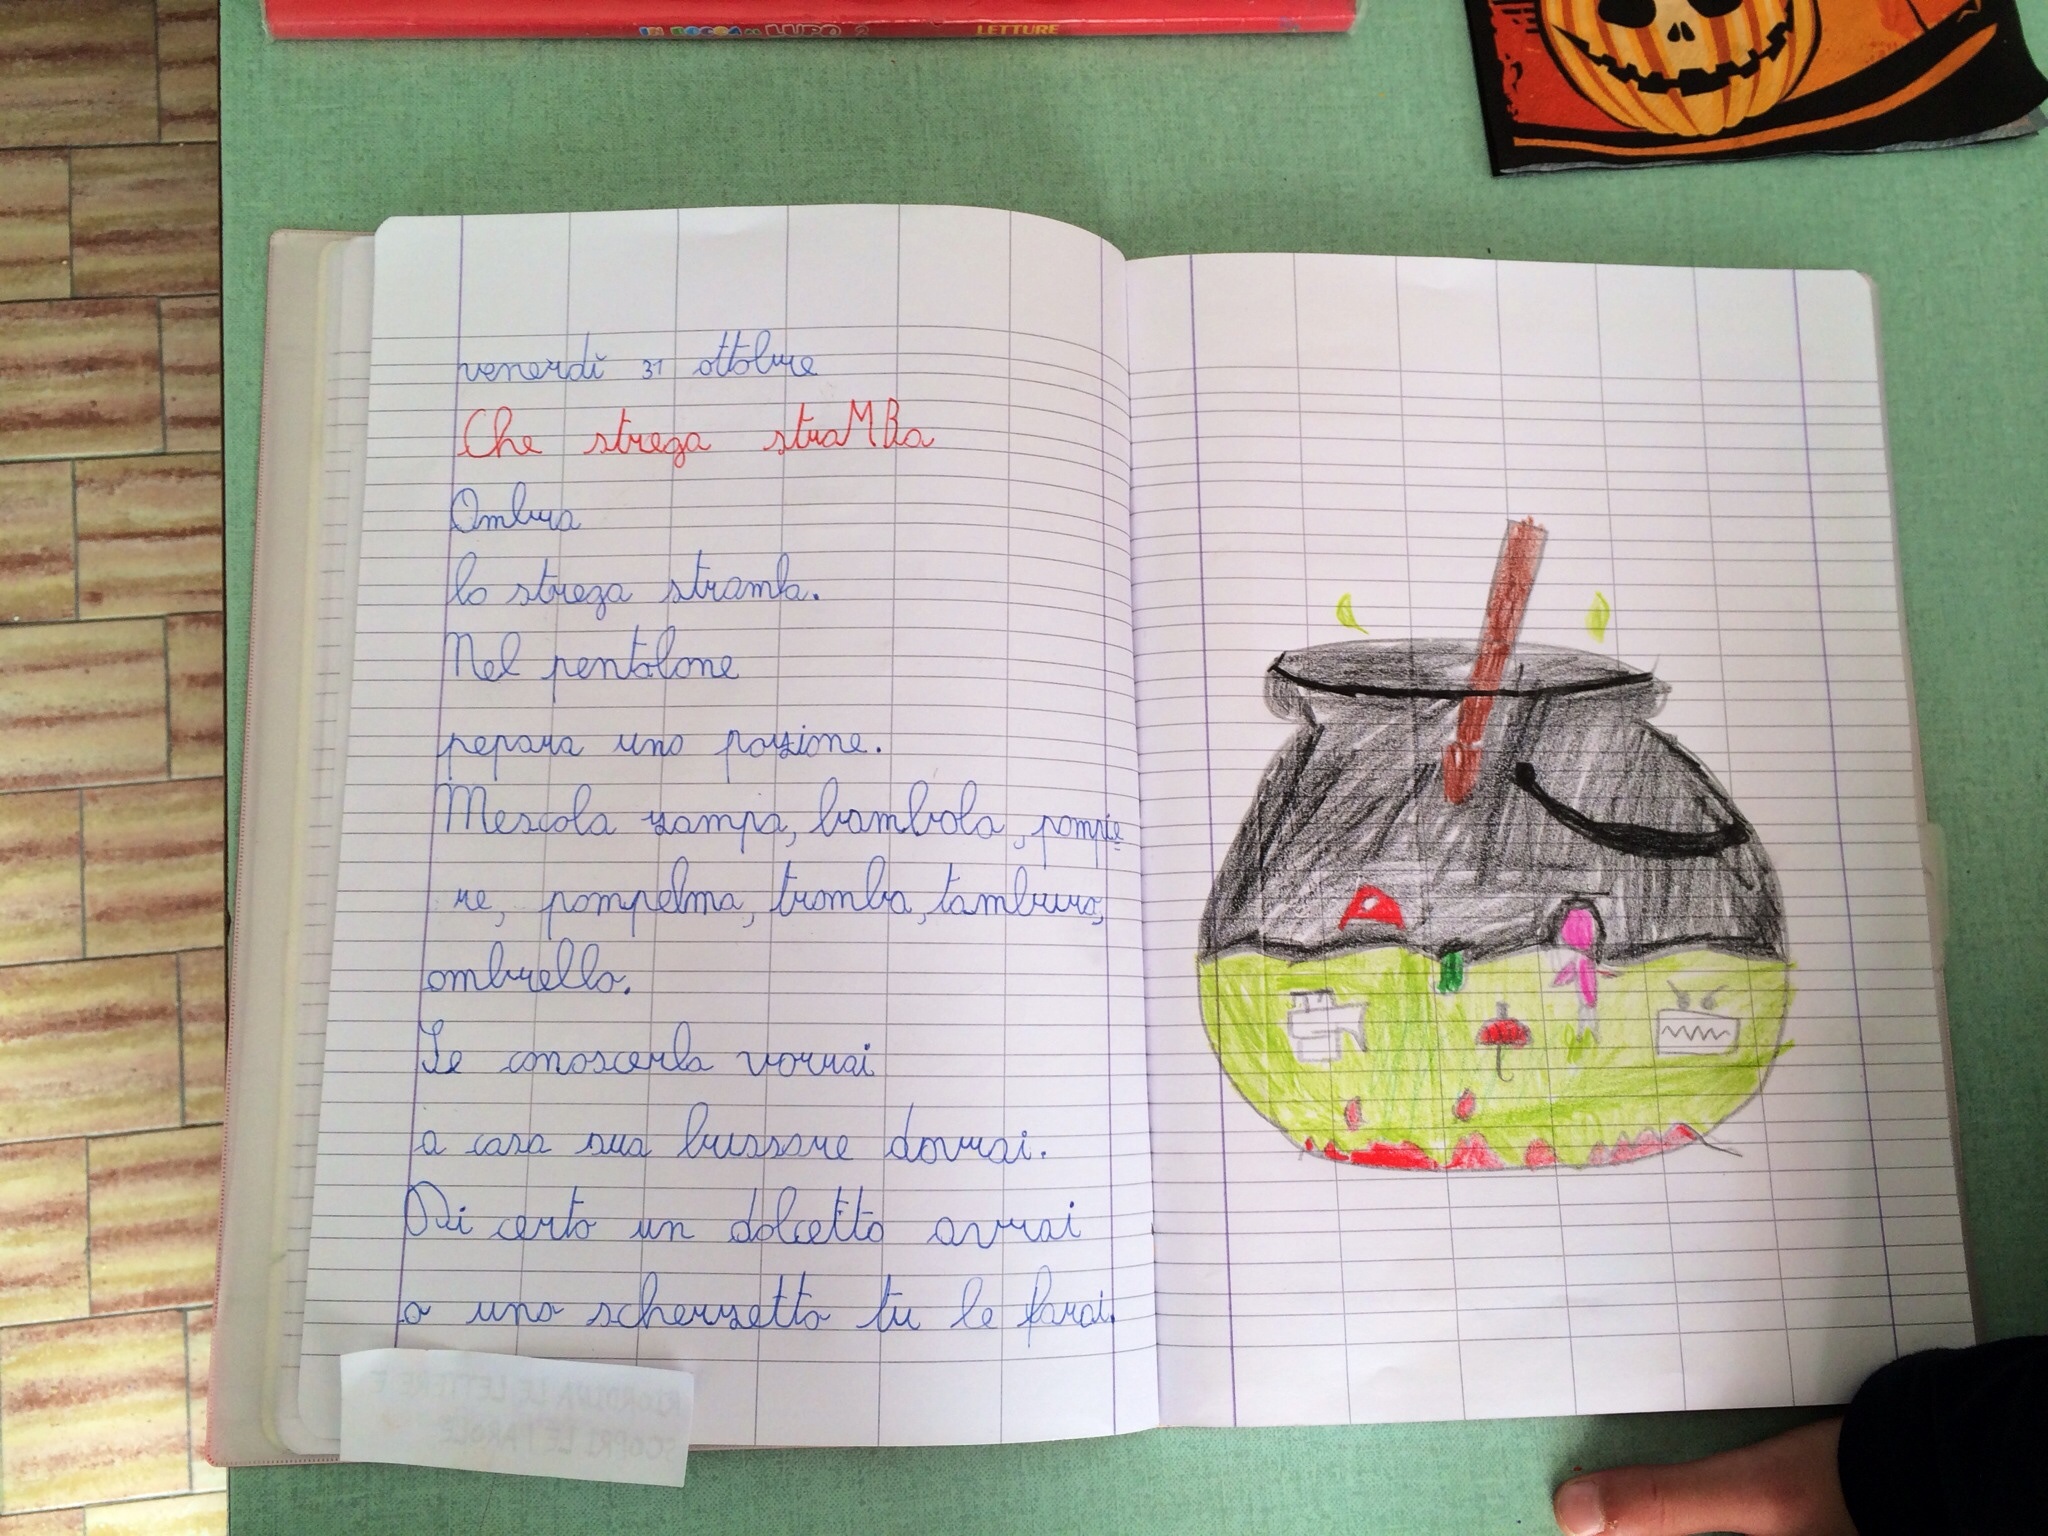 IN BOCCA AL LUPO 2 LETTURE
venerdì 31 ottobre
Che strega straMBa
Ombra
la strega stramba.
Nel pentolone
pepara una pozione.
Mescola zampa, bambola, pompie
re, pompelmo, tromba, tamburo,
ombrello.
Se conoscerla vorrai
a casa sua bussare dovrai.
Di certo un dolcetto avrai
o uno scherzetto tu le farai.
RIORDINA LE LETTERE E
SCOPRI LE PAROLE